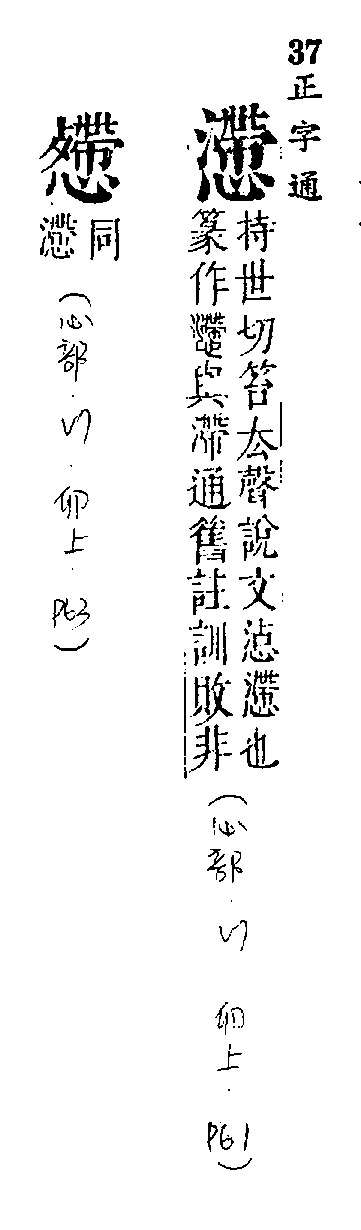 37
正字通
懘
持世切笞厺聲說文惉懘也
篆作與滯通舊註訓敗非
（心部．卯上．P61）
同
懘
（心部．卯上．P63）